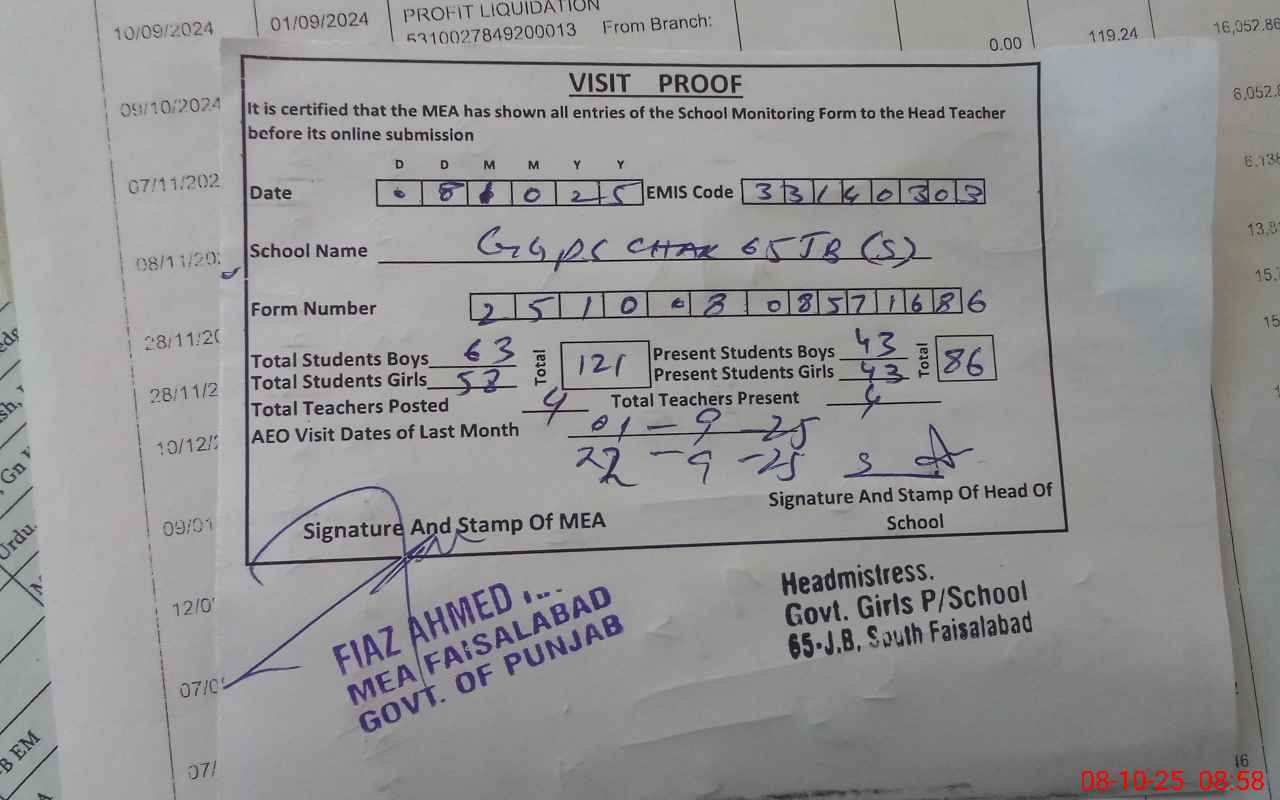 10/09/2024 01/09/2024 PROFIT LIQUIDATION
5310027849200013 From Branch:
0.00 119.24 16,052.86
09/10/2024
6,052.8
07/11/202
6,138
08/11/202
13,9
15,7
28/11/20
15
28/11/2
10/12/2
09/01
12/0
07/0
07/
46
eds
sh,
, Gn
Urdu.
-B EM
VISIT PROOF
It is certified that the MEA has shown all entries of the School Monitoring Form to the Head Teacher
before its online submission
D D M M Y Y
Date 0 8 1 0 2 5 EMIS Code 3 3 1 4 0 3 0 3
School Name GGPS CHAK 65 JB (S)
Form Number 2 5 1 0 0 8 0 8 5 7 1 6 8 6
Total Students Boys 63 Total 121 Present Students Boys 43 Total 86
Total Students Girls 58 Present Students Girls 43
Total Teachers Posted 4 Total Teachers Present 4
AEO Visit Dates of Last Month 01-9-25
22-9-25
Signature And Stamp Of MEA Signature And Stamp Of Head Of
School
FIAZ AHMED
MEA FAISALABAD
GOVT. OF PUNJAB
Headmistress.
Govt. Girls P/School
65-J.B. South Faisalabad
08-10-25 08:58